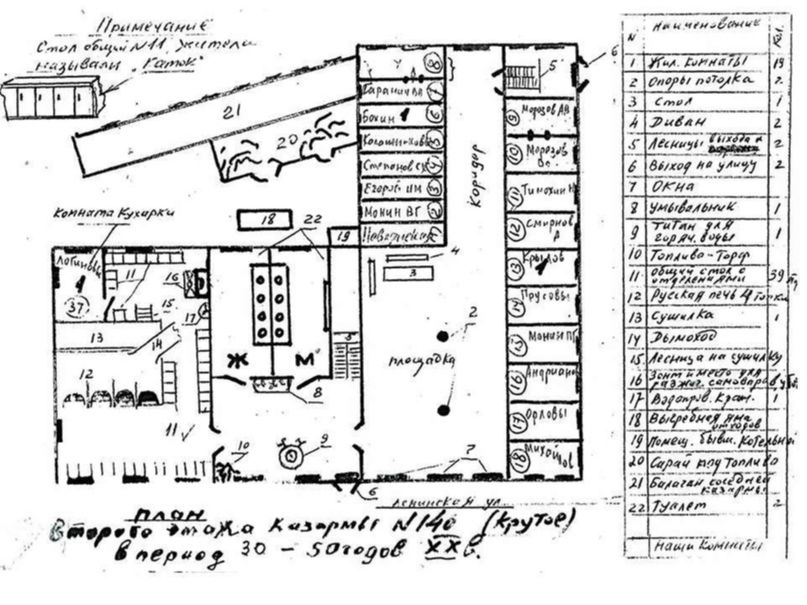 Примечание
Стол общий N11, жители
называли "Каток"
21
20
18
22
19
Комната Кухарки
Логинов
1
37
11
16
15
17
13
14
12
11
Ж
М
8
5
10
9
6
7
8
7
Бокин 1
6
5
Степанов
4
Егоров ИМ
3
Монин ВГ
2
1
Коридор
4
3
2
площадка
5
6
Морозов АН
9
Морозов
10
Тимохин Н
11
Смирнов
12
Крылов
1
13
Прусовы
14
Монин ПГ
15
Андриано
16
Орловы
17
18
7
Ленинская ул.
План
Второго этажа Казармы N140 (Крутое)
в период 30 - 50 годов XX в.
N Наименование Кол.
1 Жил. комнаты 19
2 Опоры потолка 2
3 Стол 1
4 Диван 2
5 Лесницы выхода 2
6 Выход на улицу 2
7 Окна
8 Умывальник 1
9 Титан для
горяч. воды 1
10 Топливо-Торф
11 Общий стол с
отделениями 39
12 Русская печь 4 топки
13 Сушилка 1
14 Дымоход
15 Лесница на сушилку
16 Зонт и место для
разжиг. самоваров
17 Водопров. Кран. 1
18 Выгребная яма
отходов
19 Помещ. бывш. Котельной
20 Сарай под топливо
21 Балаган соседней
казармы
22 Туалет 2
Наши Комнаты